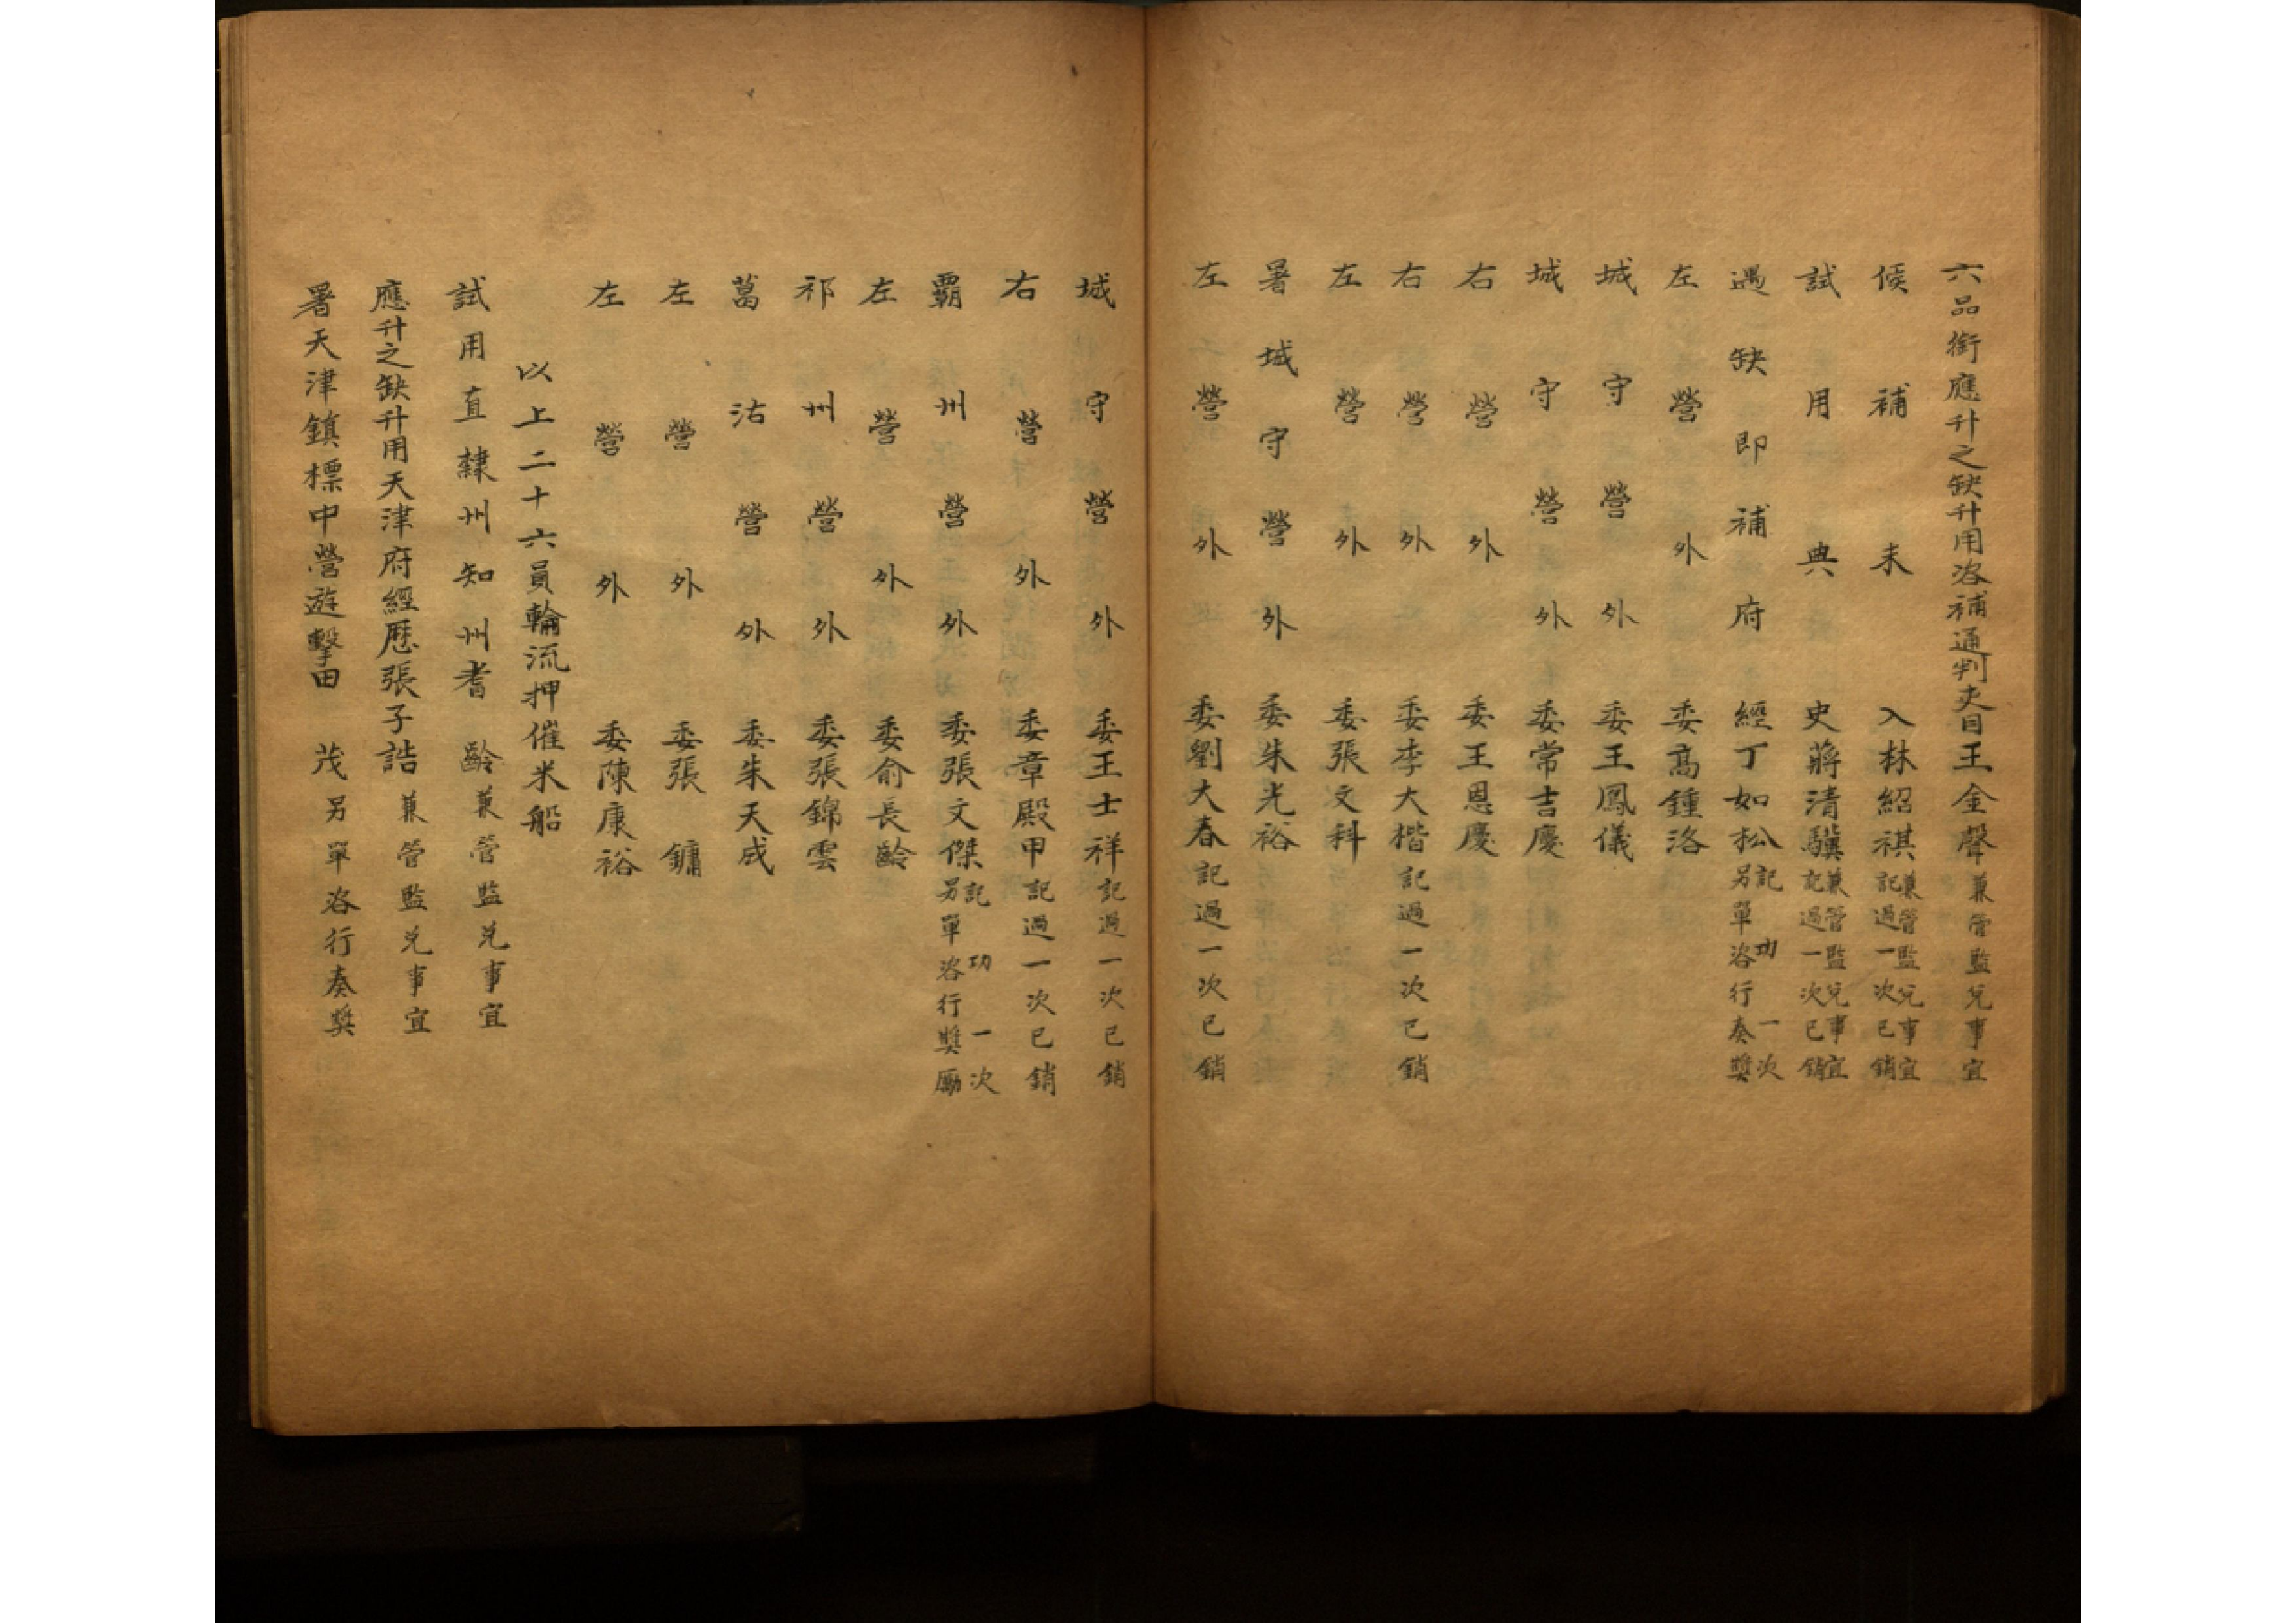 六品銜應升之缺升用洛補通判吏目王金聲兼管監兌事宜
候補未入林紹祺兼管監兌事宜記過一次已銷
試用典史蔣清驥兼管監兌事宜記過一次已銷
遇缺即補府經丁如松記功一次另單咨行奏獎
左營外委高鍾洛
城守營外委王鳳儀
城守營外委常吉慶
右營外委王恩慶
右營外委李大楷記過一次已銷
左營外委張文科
署城守營外委朱光裕
左營外委劉大春記過一次已銷
城守營外委王士祥記過一次已銷
右營外委章殿甲記過一次已銷
霸州營外委張文傑記功一次另單咨行獎勵
左營外委俞長齡
祁州營外委張錦雲
葛沽營外委朱天成
左營外委張鏞
左營外委陳康裕
以上二十六員輪流押催米船
試用直隸州知州耆齡兼管監兌事宜
應升之缺升用天津府經歷張子誥兼管監兌事宜
署天津鎮標中營遊擊田茂另單咨行奏獎